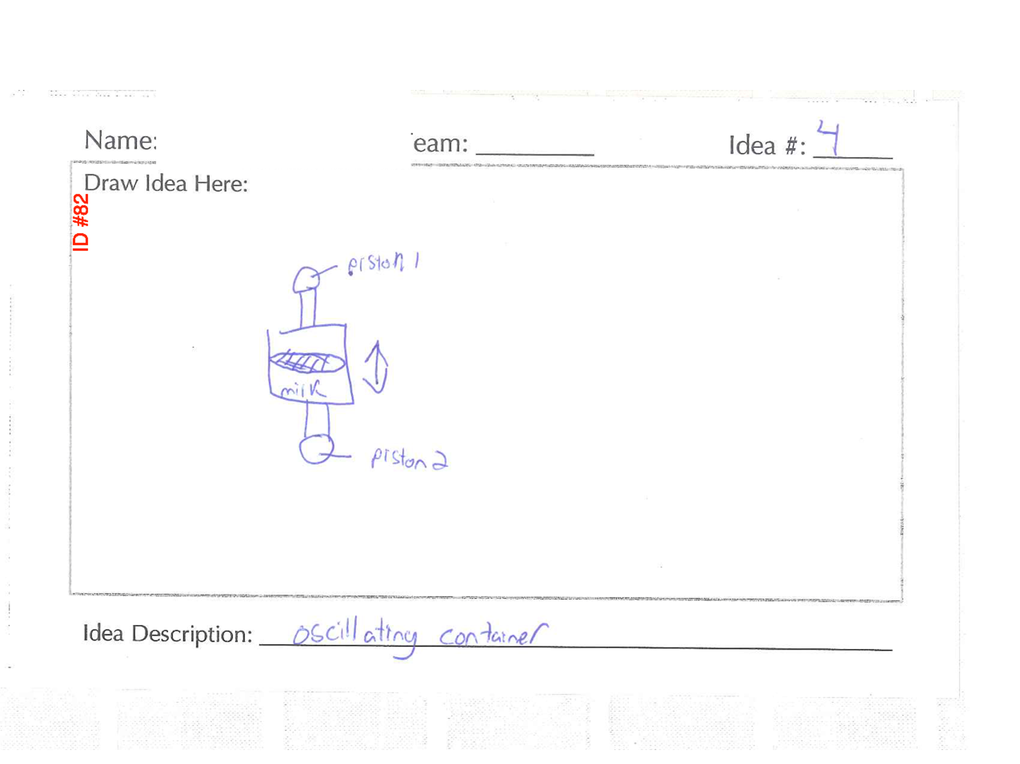 Name: eam: ______ Idea #: 4
Draw Idea Here:
ID #82
piston 1
milk
piston 2
Idea Description: oscillating container